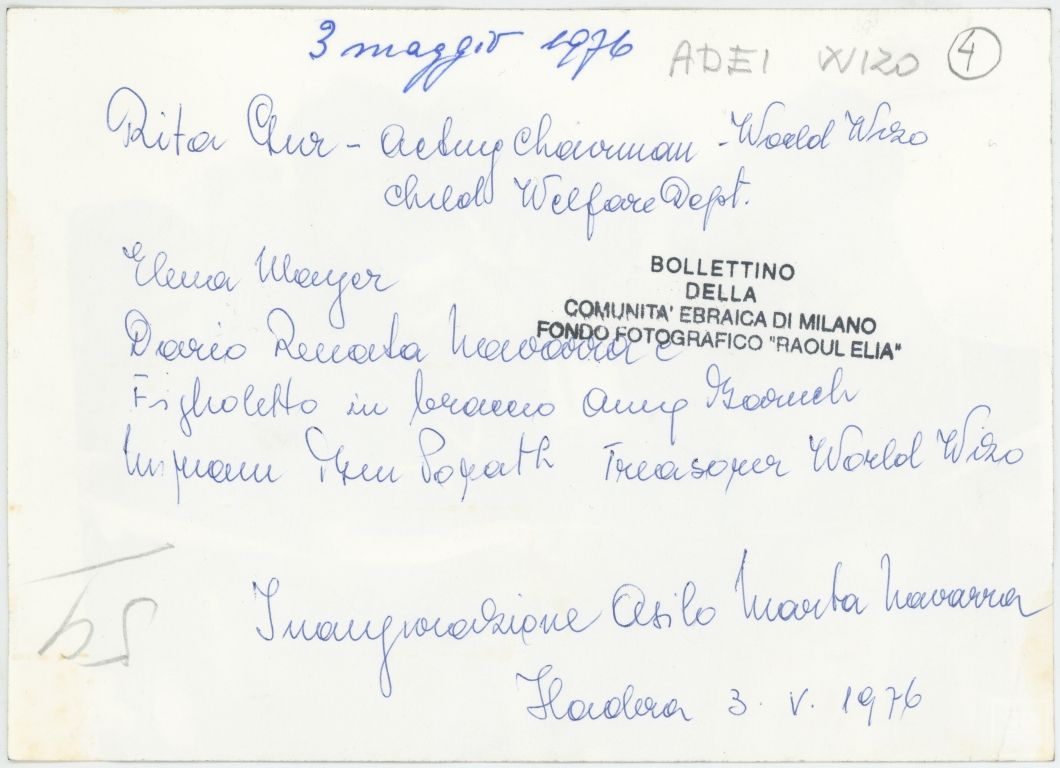 3 maggio 1976
ADEI WIZO 4
Rita - Acting Chairman - World Wizo
Child Welfare Dept.
Elena Mayer
BOLLETTINO
DELLA
COMUNITA' EBRAICA DI MILANO
FONDO FOTOGRAFICO "RAOUL ELIA"
Dario Renata Navarra e
Figlioletto in braccio Anny Baruch
Treasorer World Wizo
Inaugurazione Asilo Marta Navarra
Hadera 3. V. 1976